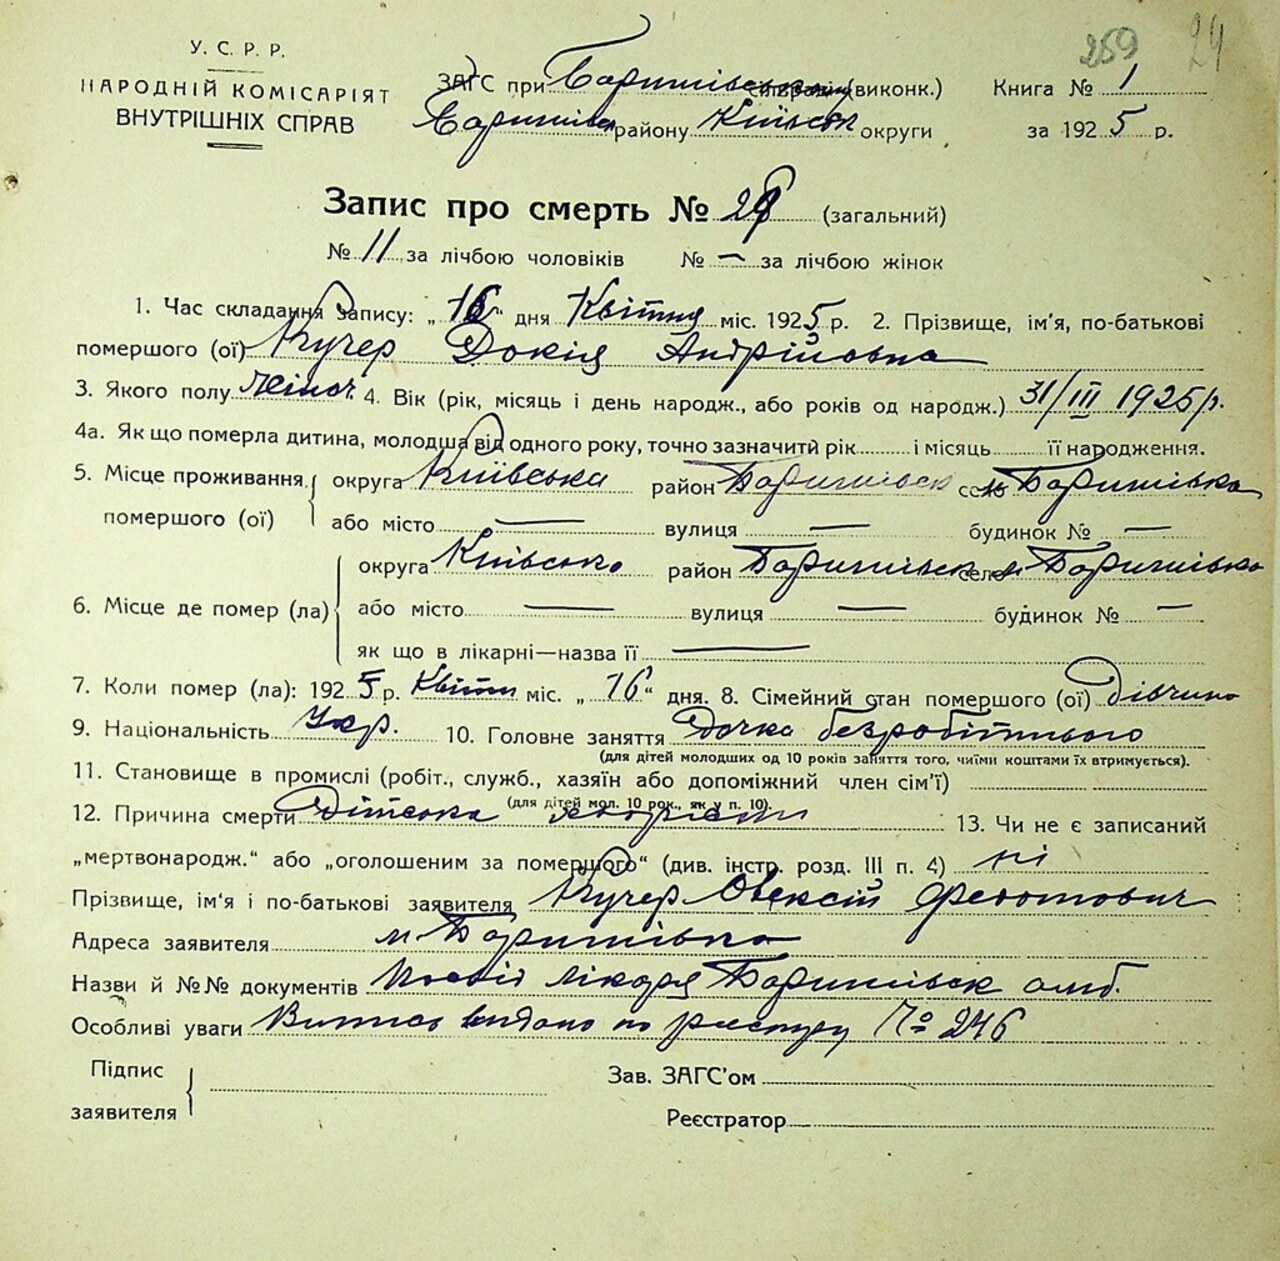 259 24
У. С. Р. Р.
НАРОДНІЙ КОМІСАРІЯТ
ВНУТРІШНІХ СПРАВ
ЗАГС при (виконк.) Книга № 1
району Київськ округи за 1925 р.
Запис про смерть № 29 (загальний)
№ 11 за лічбою чоловіків № — за лічбою жінок
1. Час складання запису: „16“ дня Квітня міс. 1925 р. 2. Прізвище, ім'я, по-батькові
помершого (ої) Кучер Докія Андрійовна
3. Якого полу жіноч. 4. Вік (рік, місяць і день народж., або років од народж.) 31/III 1925 р.
4а. Як що померла дитина, молодша від одного року, точно зазначити рік і місяць її народження.
5. Місце проживання помершого (ої) округа Київська район Баришівськ село м. Баришівка
або місто — вулиця — будинок № —
6. Місце де помер (ла) округа Київсько район Баришівськ село м Баришівка
або місто — вулиця — будинок № —
як що в лікарні—назва її —
7. Коли помер (ла): 1925 р. Квітн міс. „16“ дня. 8. Сімейний стан помершого (ої) Дівчина
9. Національність Укр. 10. Головне заняття Дочка безробітнього
(для дітей молодших од 10 років заняття того, чиїми коштами їх втримується).
11. Становище в промислі (робіт., служб., хазяїн або допоміжний член сім'ї)
(для дітей мол. 10 рок., як у п. 10).
12. Причина смерти Дітська 13. Чи не є записаний
„мертвонародж.“ або „оголошеним за помершого“ (див. інстр. розд. III п. 4) ні
Прізвище, ім'я і по-батькові заявителя Кучер Олексій Федотович
Адреса заявителя м. Баришівка
Назви й №№ документів Посвід лікаря Баришівськ амб.
Особліві уваги Витись видано по реєстру № 246
Підпис заявителя
Зав. ЗАГС'ом
Реєстратор